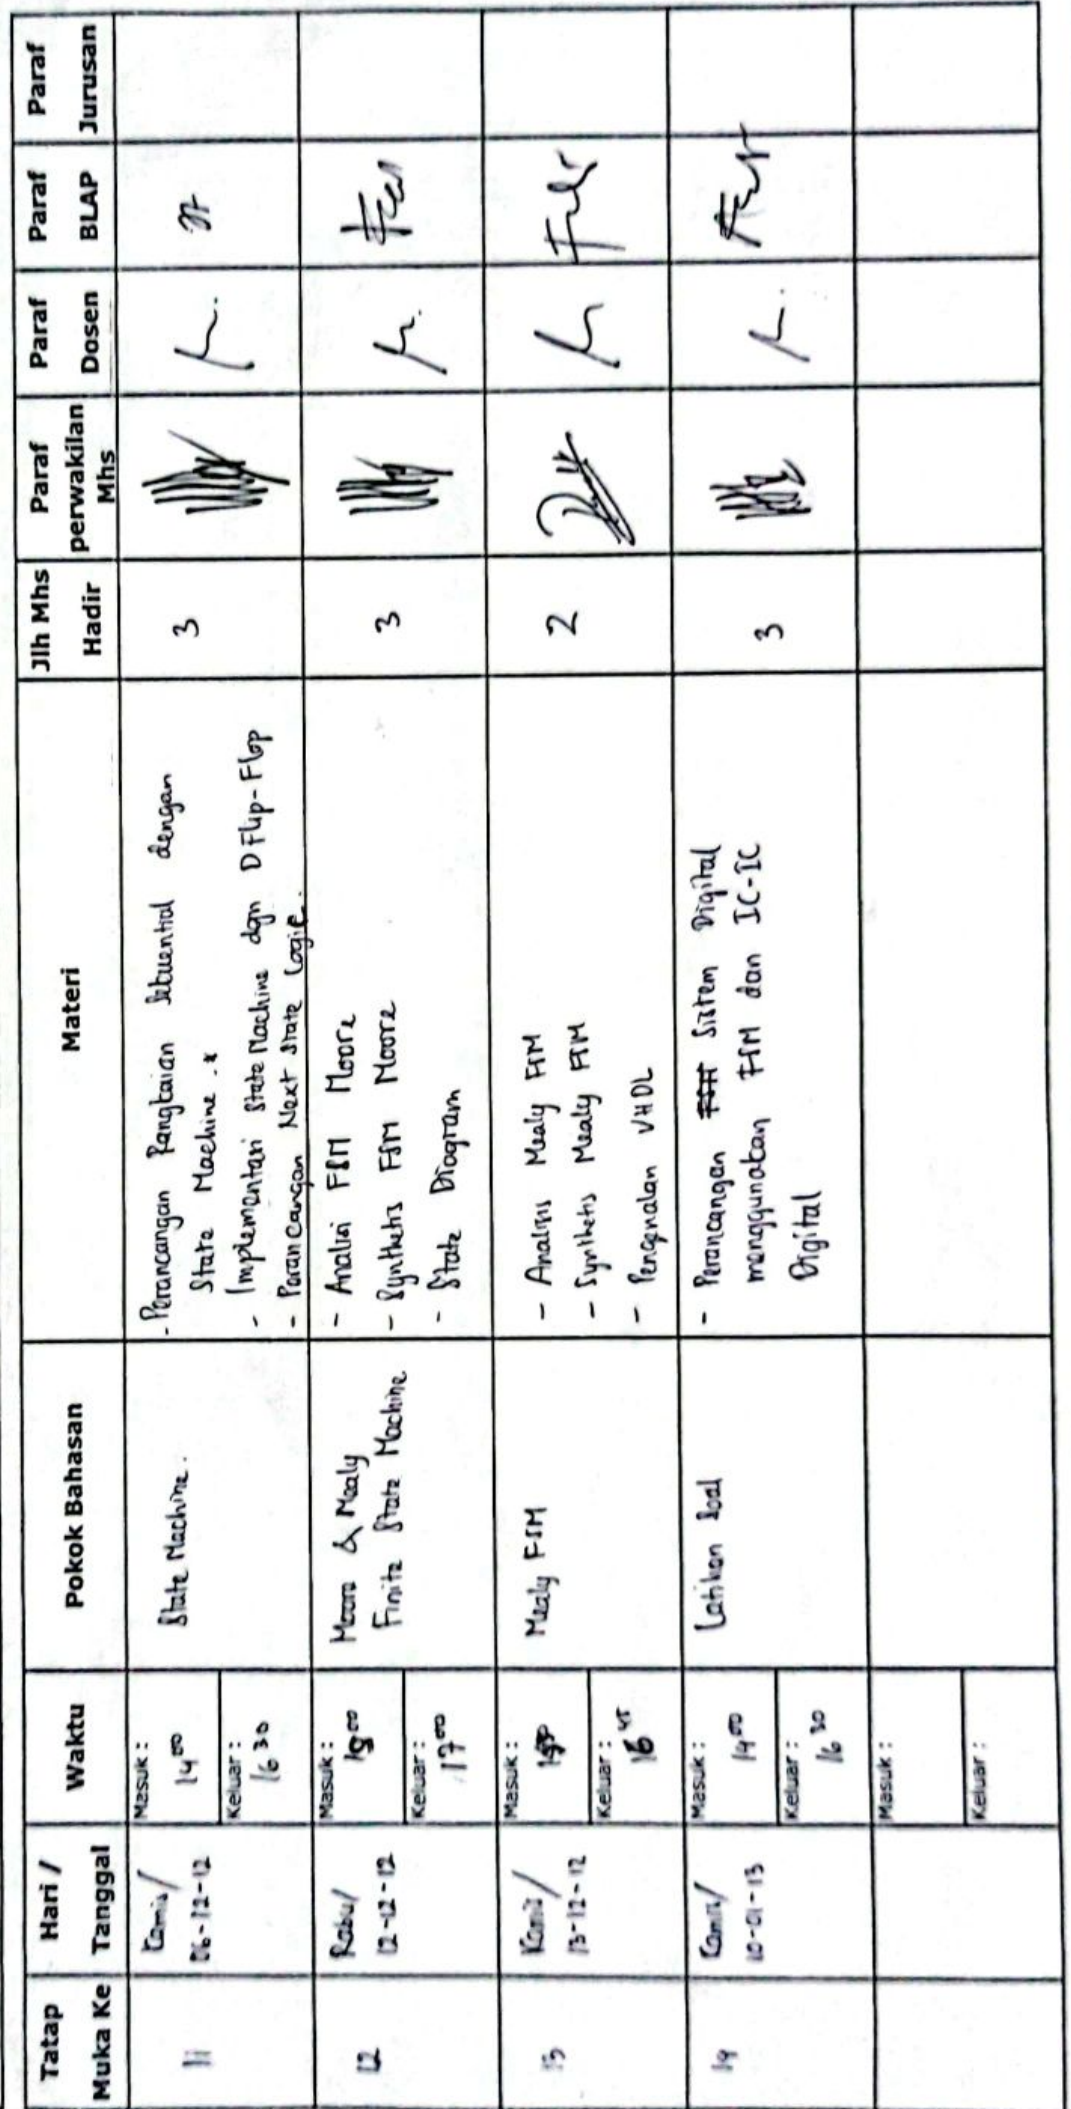 Tatap Muka Ke
Hari / Tanggal
Waktu
Pokok Bahasan
Materi
Jlh Mhs Hadir
Paraf perwakilan Mhs
Paraf Dosen
Paraf BLAP
Paraf Jurusan
11
Kamis/
06-12-12
Masuk :
14 00
Keluar :
16 30
State Machine.
- Perancangan Rangkaian Sekuential dengan
State Machine.
- Implementasi State Machine dgn D Flip-Flop
- Perancangan Next State Logic.
3
12
Rabu/
12-12-12
Masuk :
00
Keluar :
17 00
Moore & Mealy
Finite State Machine
- Analisi FSM Moore
- Synthesis FSM Moore
- State Diagram
3
13
Kamis/
13-12-12
Masuk :
Keluar :
16 45
Mealy FSM
- Analisis Mealy FSM
- Synthesis Mealy FSM
- Pengenalan VHDL
2
14
Kamis/
10-01-13
Masuk :
14 00
Keluar :
16 30
Latihan Soal
- Perancangan Sistem Digital
menggunakan FSM dan IC-IC
Digital
3
Masuk :
Keluar :